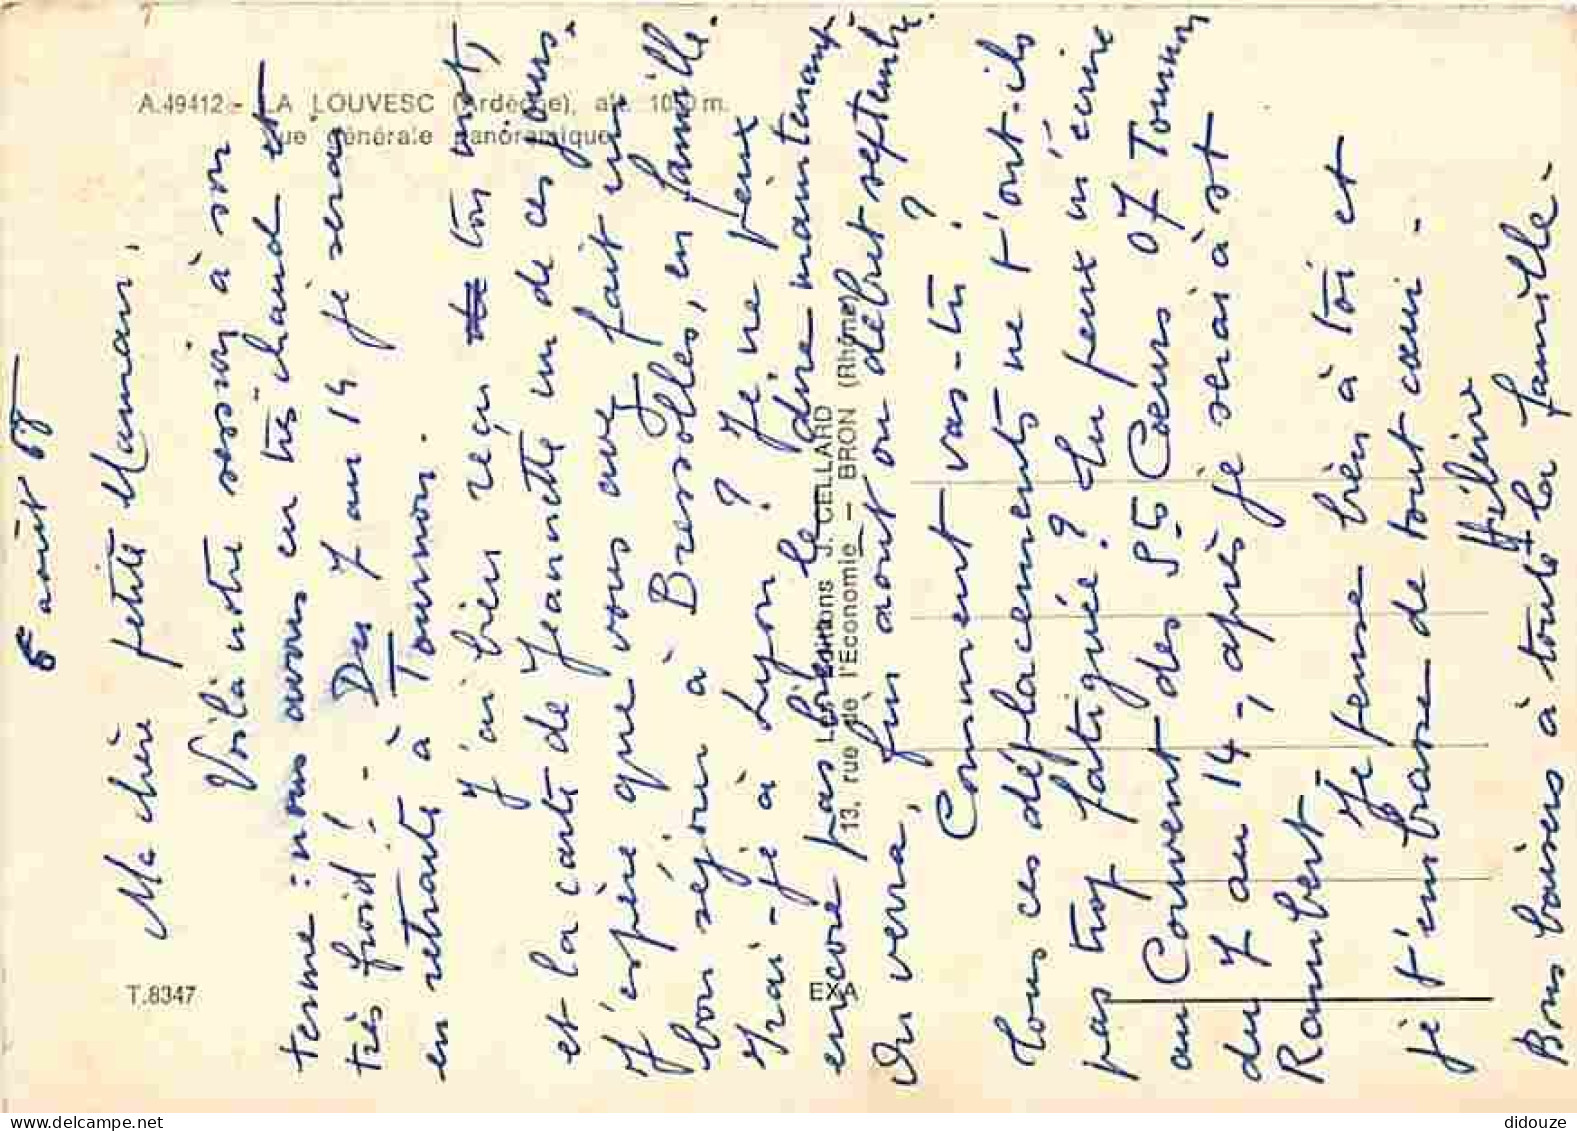 6 août 68
Ma chère petite Maman,
Voilà notre session à son
terme : nous avons eu très chaud et
très froid ! - Du 7 au 14 je serai
en retraite à Tournon.
J'ai bien reçu ton mot,
et la carte de Jeannette un de ces jours.
J'espère que vous avez fait un
bon séjour à Bressolles, en famille.
Irai-je à Lyon ? Je ne peux
encore pas bien le dire maintenant
On verra, fin août ou début septembre ?
Comment vas-tu ?
Tous ces déplacements ne t'ont-ils
pas trop fatiguée ? Tu peux m'écrire
au Couvent des SS Coeurs 07 Tournon
du 7 au 14 -, après je serai à St
Rambert
Je pense bien à toi et
je t'embrasse de tout coeur -
Hélène
Bons baisers à toute la famille -
A.49412 - LA LOUVESC (Ardèche), alt. 1050 m.
Vue générale panoramique
T.8347
EXA
LES EDITIONS J. CELLARD
13, rue de l'Economie — BRON (Rhône)
didouze